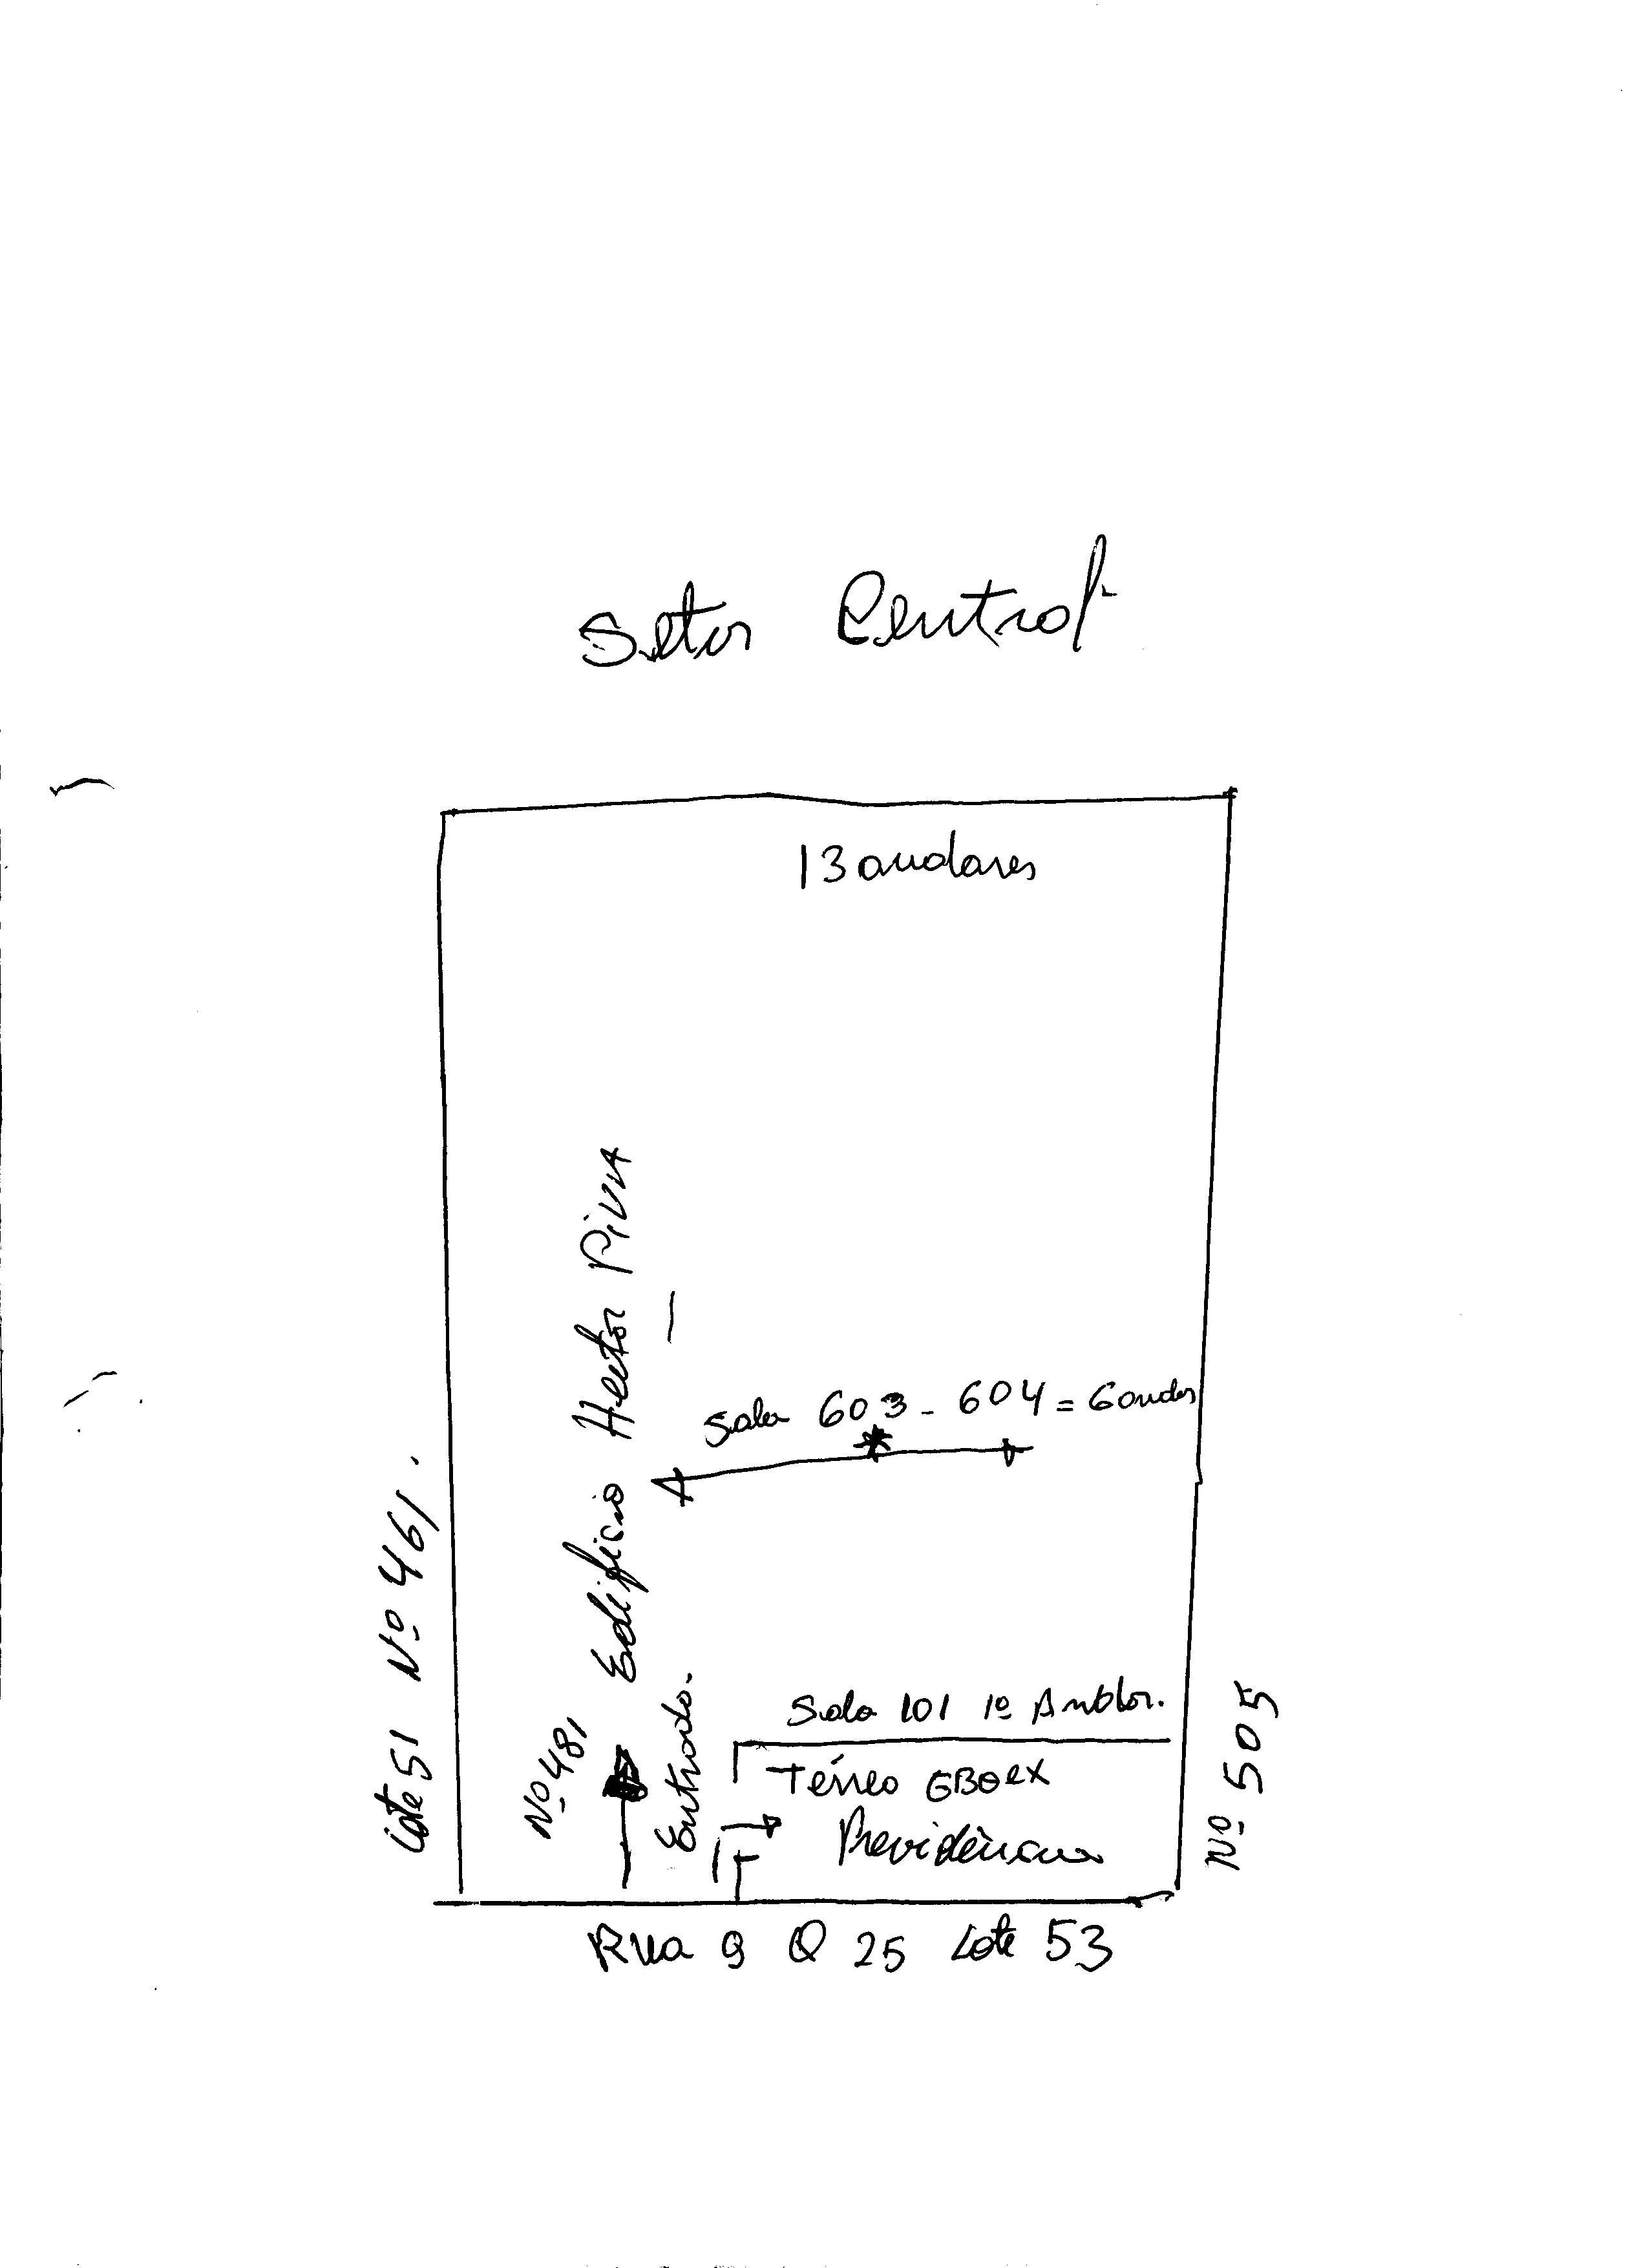 Setor Central
13 andares
Edificio Hector Piva
Sala 603 - 604 = 6 andar
Lote 51 Nº 461.
Nº 481
Entrada.
Sala 101 1º Andar.
Térreo GBOEX
Previdência
Nº 505
Rua 9 Q 25 Lote 53